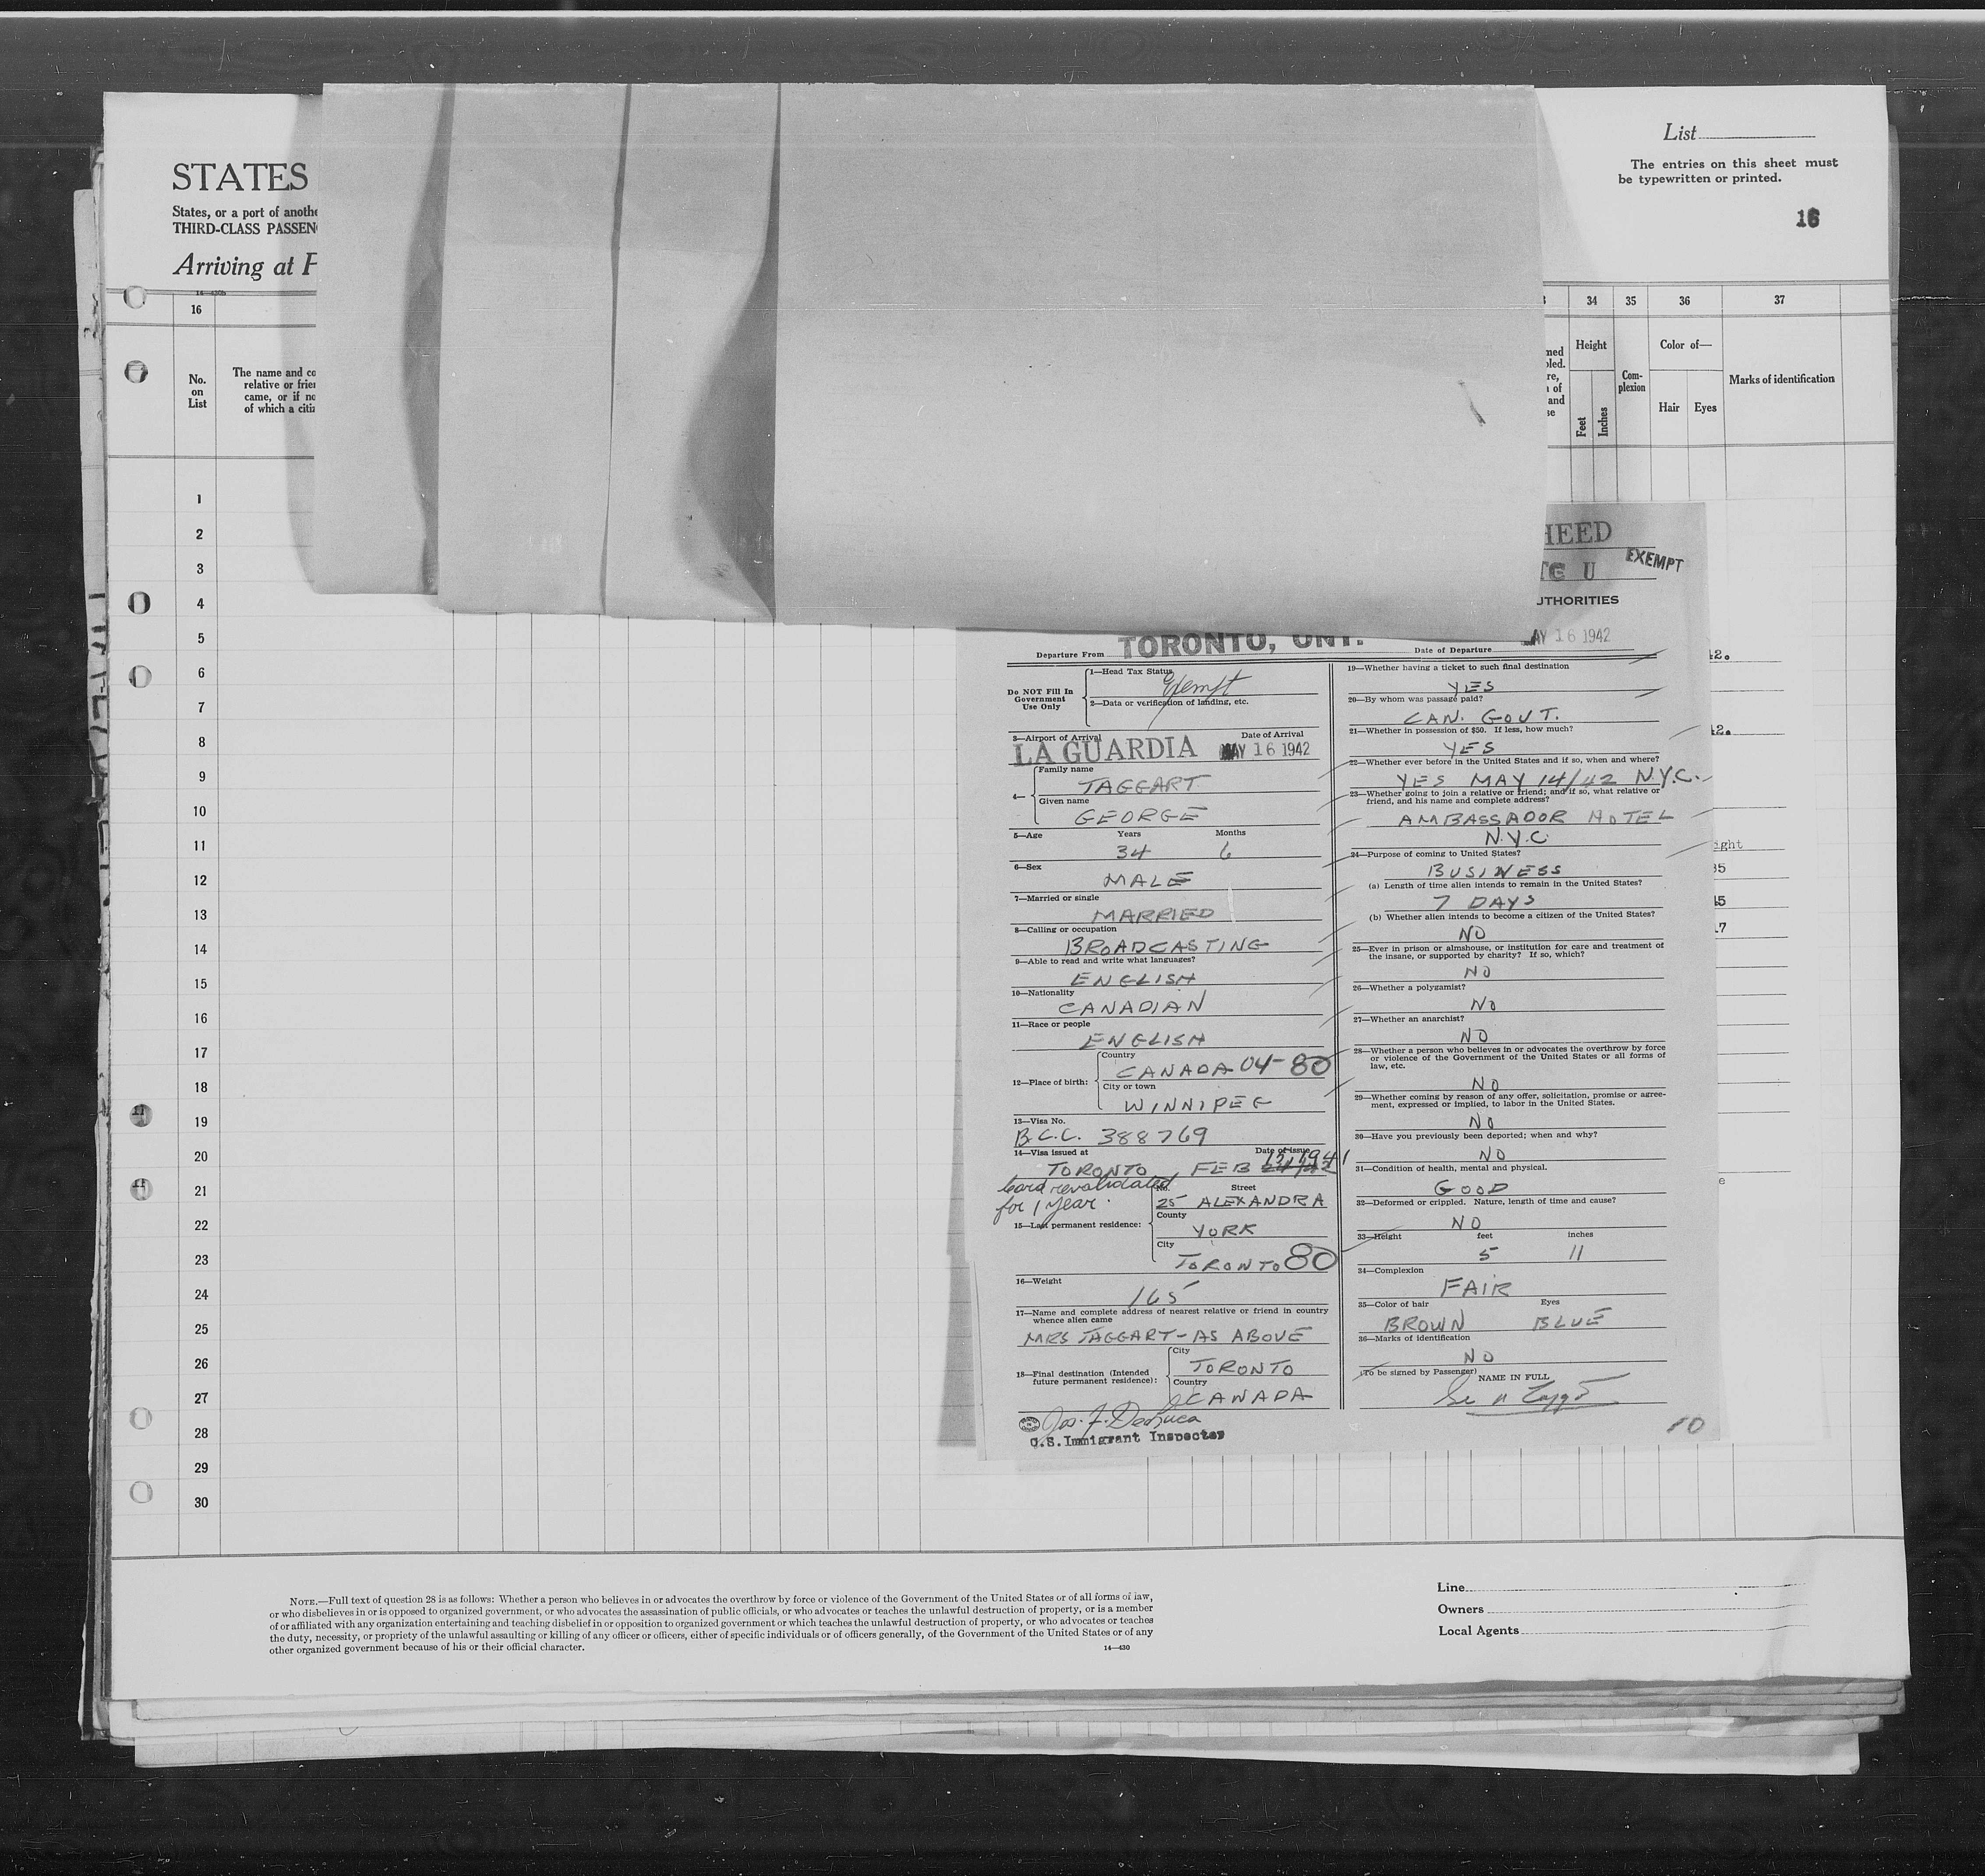 STATES
States, or a port of anothe
THIRD-CLASS PASSEN
Arriving at P
List
The entries on this sheet must
be typewritten or printed.
16
16
34 35 36 37
No.
on
List
The name and co
relative or frien
came, or if no
of which a citiz
Height
Feet
Inches
Com-
plexion
Color of—
Hair Eyes
Marks of identification
1
2
3
4
5
6
7
8
9
10
11
12
13
14
15
16
17
18
19
20
21
22
23
24
25
26
27
28
29
30
HEED
EXEMPT
TE U
UTHORITIES
Departure From TORONTO, ONT.
Date of Departure AY 16 1942
Do NOT Fill In
Government
Use Only
1—Head Tax Status
Exempt
2—Data or verification of landing, etc.
3—Airport of Arrival Date of Arrival
LA GUARDIA MAY 16 1942
4—
Family name
TAGGART
Given name
GEORGE
5—Age Years Months
34 6
6—Sex
MALE
7—Married or single
MARRIED
8—Calling or occupation
BROADCASTING
9—Able to read and write what languages?
ENGLISH
10—Nationality
CANADIAN
11—Race or people
ENGLISH
12—Place of birth:
Country
CANADA 04-80
City or town
WINNIPEG
13—Visa No.
B.C.C. 388769
14—Visa issued at Date of issue
TORONTO FEB 13, 1941
Card revalidated
for 1 year.
15—Last permanent residence:
No. Street
25 ALEXANDRA
County
YORK
City
TORONTO 80
16—Weight
165
17—Name and complete address of nearest relative or friend in country
whence alien came
MRS TAGGART - AS ABOVE
18—Final destination (Intended
future permanent residence):
City
TORONTO
Country
CANADA
U.S. Immigrant Inspector
19—Whether having a ticket to such final destination
YES
20—By whom was passage paid?
CAN. GOVT.
21—Whether in possession of $50. If less, how much?
YES
22—Whether ever before in the United States and if so, when and where?
YES MAY 14/42 N.Y.C.
23—Whether going to join a relative or friend; and if so, what relative or
friend, and his name and complete address?
AMBASSADOR HOTEL
N.Y.C.
24—Purpose of coming to United States?
BUSINESS
(a) Length of time alien intends to remain in the United States?
7 DAYS
(b) Whether alien intends to become a citizen of the United States?
NO
25—Ever in prison or almshouse, or institution for care and treatment of
the insane, or supported by charity? If so, which?
NO
26—Whether a polygamist?
NO
27—Whether an anarchist?
NO
28—Whether a person who believes in or advocates the overthrow by force
or violence of the Government of the United States or all forms of
law, etc.
NO
29—Whether coming by reason of any offer, solicitation, promise or agree-
ment, expressed or implied, to labor in the United States.
NO
30—Have you previously been deported; when and why?
NO
31—Condition of health, mental and physical.
GOOD
32—Deformed or crippled. Nature, length of time and cause?
NO
33—Height feet inches
5 11
34—Complexion
FAIR
35—Color of hair Eyes
BROWN BLUE
36—Marks of identification
NO
(To be signed by Passenger) NAME IN FULL
10
NOTE.—Full text of question 28 is as follows: Whether a person who believes in or advocates the overthrow by force or violence of the Government of the United States or of all forms of law,
or who disbelieves in or is opposed to organized government, or who advocates the assassination of public officials, or who advocates or teaches the unlawful destruction of property, or is a member
of or affiliated with any organization entertaining and teaching disbelief in or opposition to organized government or which teaches the unlawful destruction of property, or who advocates or teaches
the duty, necessity, or propriety of the unlawful assaulting or killing of any officer or officers, either of specific individuals or of officers generally, of the Government of the United States or of any
other organized government because of his or their official character.
14—430
Line
Owners
Local Agents